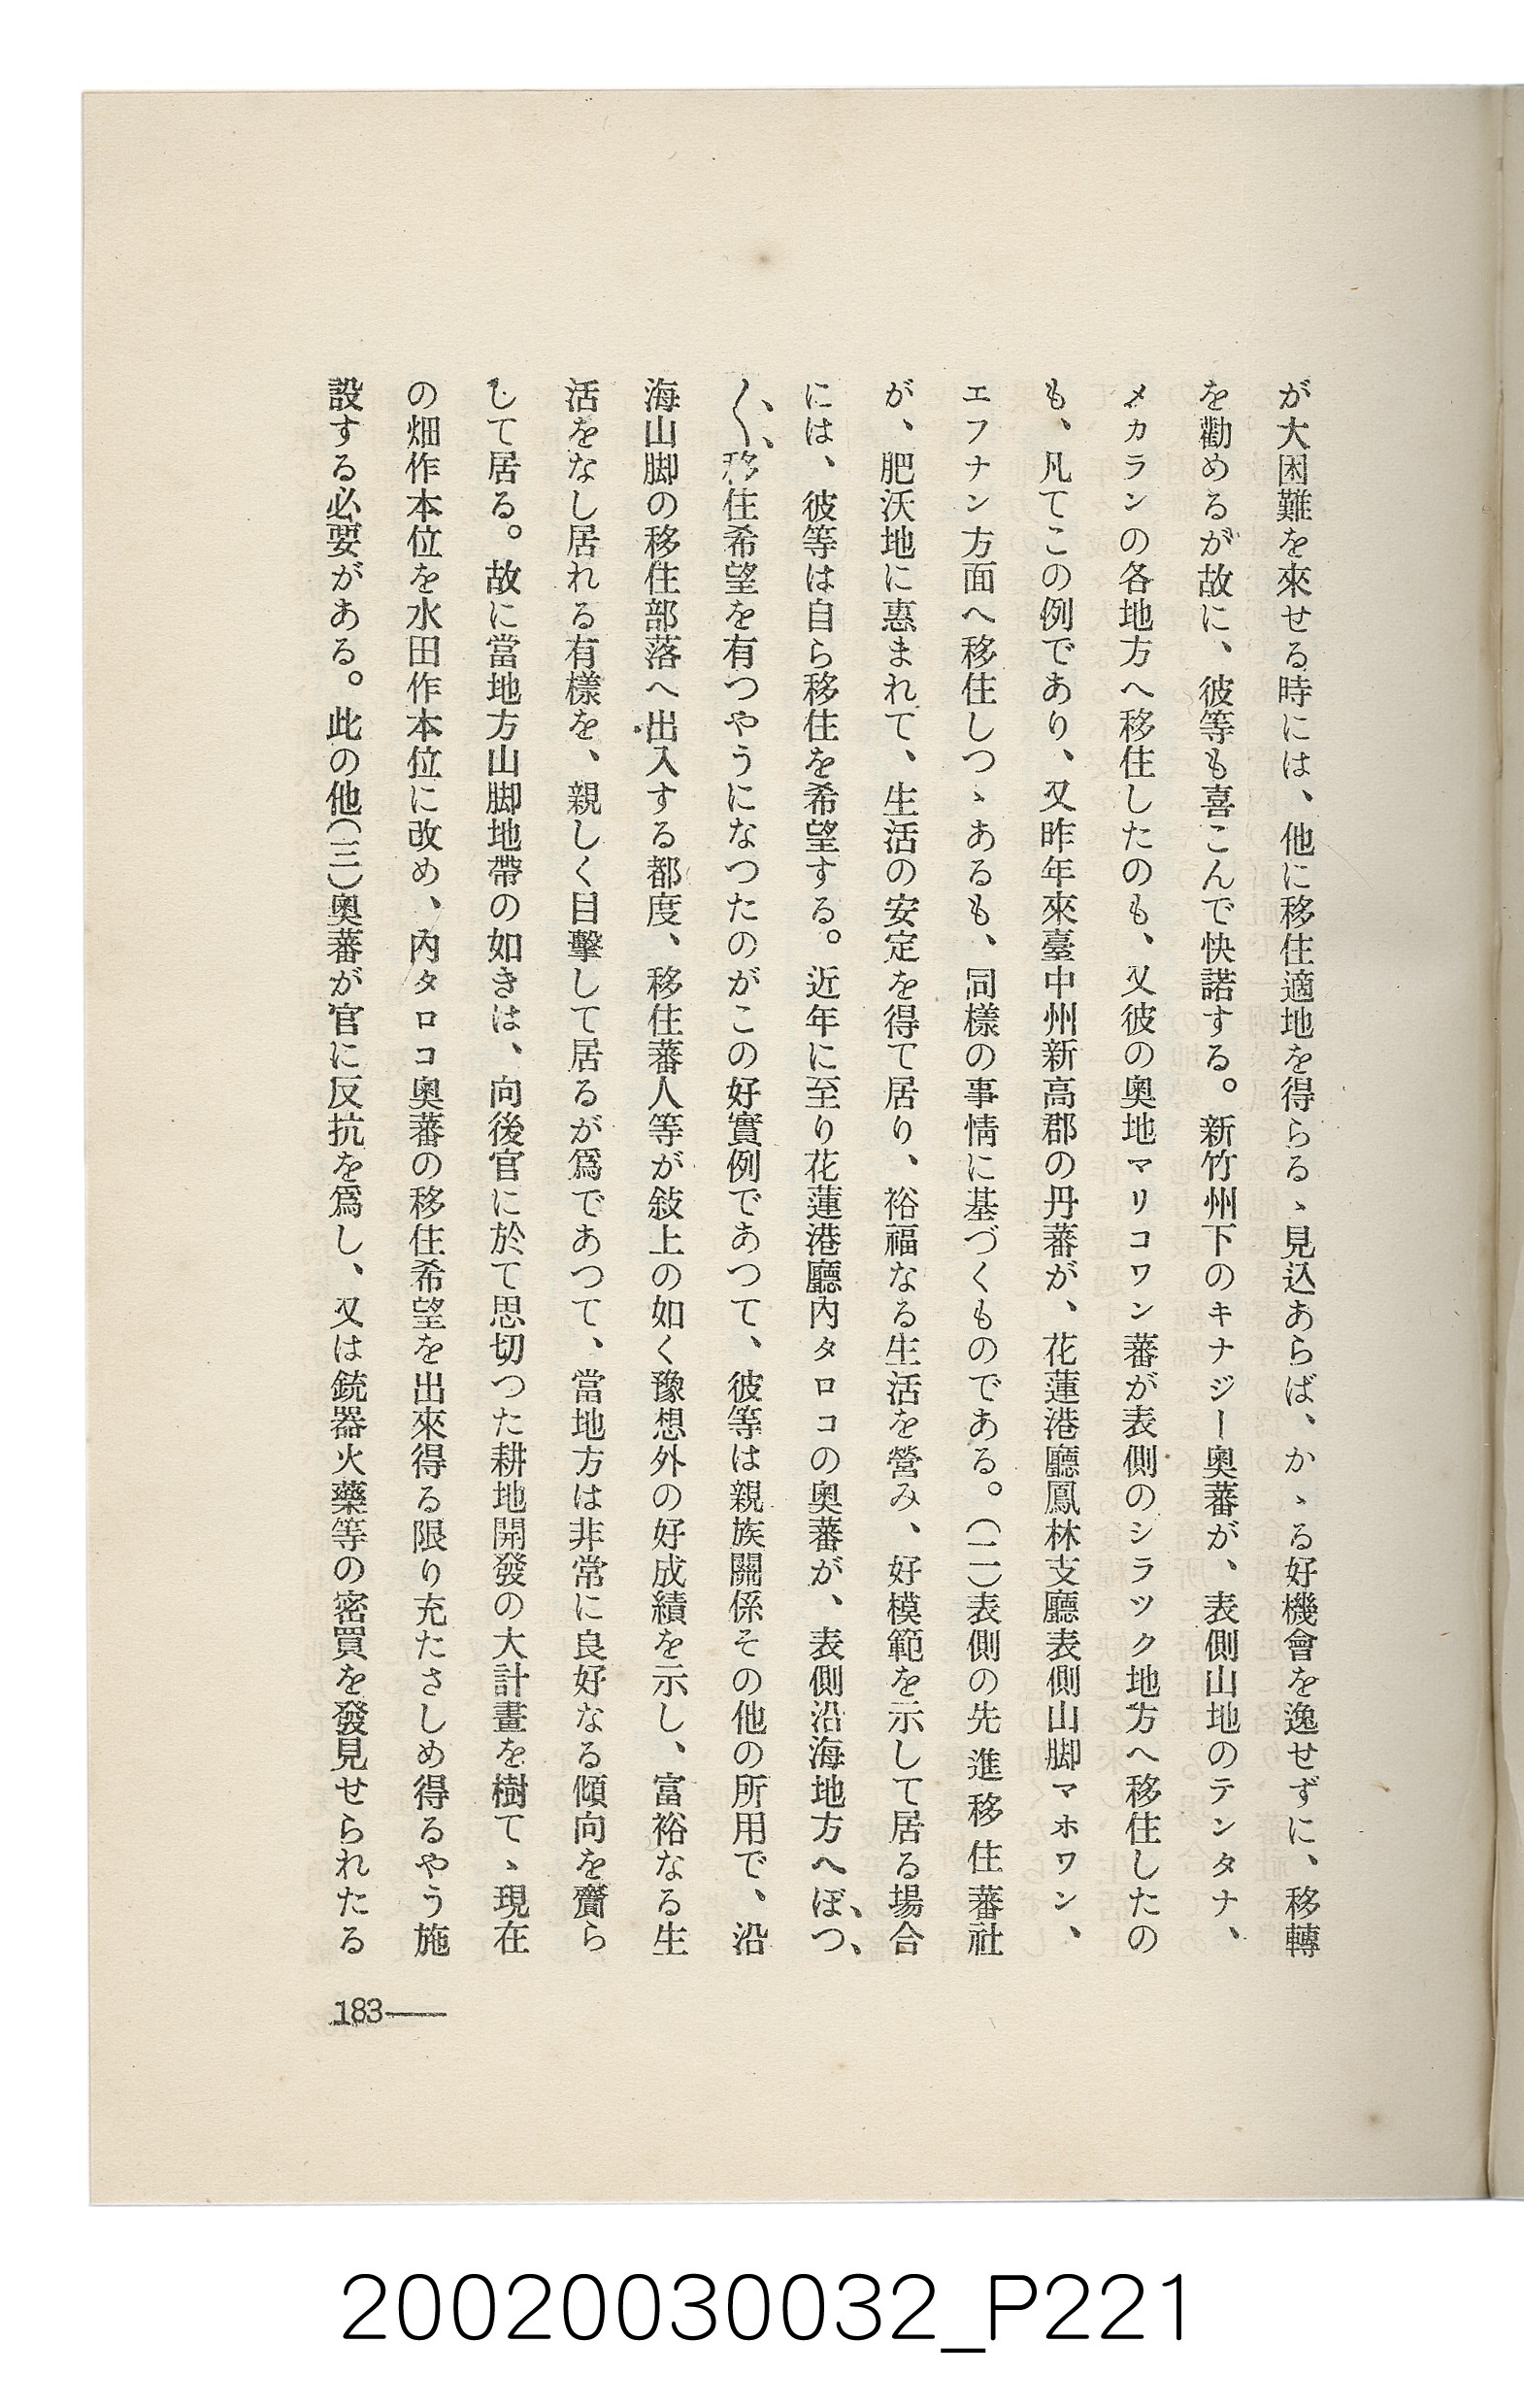 が大困難を來せる時には、他に移住適地を得らるゝ見込あらば、かゝる好機會を逸せずに、移轉
を勸めるが故に、彼等も喜こんで快諾する。新竹州下のキナジー奧蕃が、表側山地のテンタナ、
メカランの各地方へ移住したのも、又彼の奧地マリコワン蕃が表側のシラック地方へ移住したの
も、凡てこの例であり、又昨年來臺中州新高郡の丹蕃が、花蓮港廳鳳林支廳表側山脚マホワン、
エフナン方面へ移住しつゝあるも、同樣の事情に基づくものである。(二)表側の先進移住蕃社
が、肥沃地に惠まれて、生活の安定を得て居り、裕福なる生活を營み、好模範を示して居る場合
には、彼等は自ら移住を希望する。近年に至り花蓮港廳內タロコの奧蕃が、表側沿海地方へぼつ
〱移住希望を有つやうになつたのがこの好實例であつて、彼等は親族關係その他の所用で、沿
海山脚の移住部落へ出入する都度、移住蕃人等が敍上の如く豫想外の好成績を示し、富裕なる生
活をなし居れる有樣を、親しく目擊して居るが爲であつて、當地方は非常に良好なる傾向を齎ら
して居る。故に當地方山脚地帶の如きは、向後官に於て思切つた耕地開發の大計畫を樹てゝ現在
の畑作本位を水田作本位に改め、內タロコ奧蕃の移住希望を出來得る限り充たさしめ得るやう施
設する必要がある。此の他(三)奧蕃が官に反抗を爲し、又は銃器火藥等の密買を發見せられたる
183——
20020030032_P221